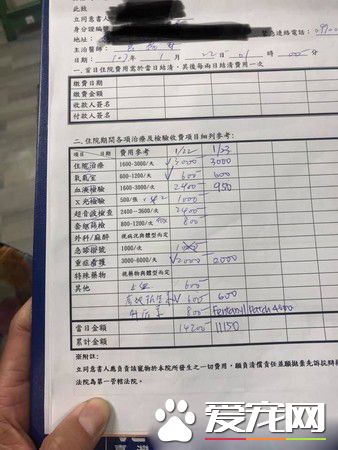 此致
立同意書人
身分證編號
地址：
緊急連絡電話：
主治醫師：
日期：107年 1月 22日 01時 00分
一．首日住院費用需於當日結清，其後每兩日結清費用一次
繳費日期
繳費金額
收款人簽名
付款人簽名
二．住院期間各項治療及檢驗收費項目細列參考：
項目 日期 費用參考 1/22 1/23
住院治療 1600-3000/天 3000 3000
氧氣室 600-1200/天 600 600
血液檢驗 1600-3000/次 2400 950
X光檢驗 500/張 x2 1000
超音波檢查 2400-3600/次 2400
套組篩檢 800-1200/次 800
外科/麻醉 視病況與體型而定
急診掛號 1000/次
重症看護 3000-6000/天 2000 2000
特殊藥物 視藥物與體型而定
其他
600 600
800 Fentanyl Patch 4000
當日金額 14200 11150
累計金額
※附註：
立同意書人應負責該寵物於本院所發生之一切費用，願負清償責任並願拋棄先訴抗辯
法院為第一管轄法院。
爱宠网